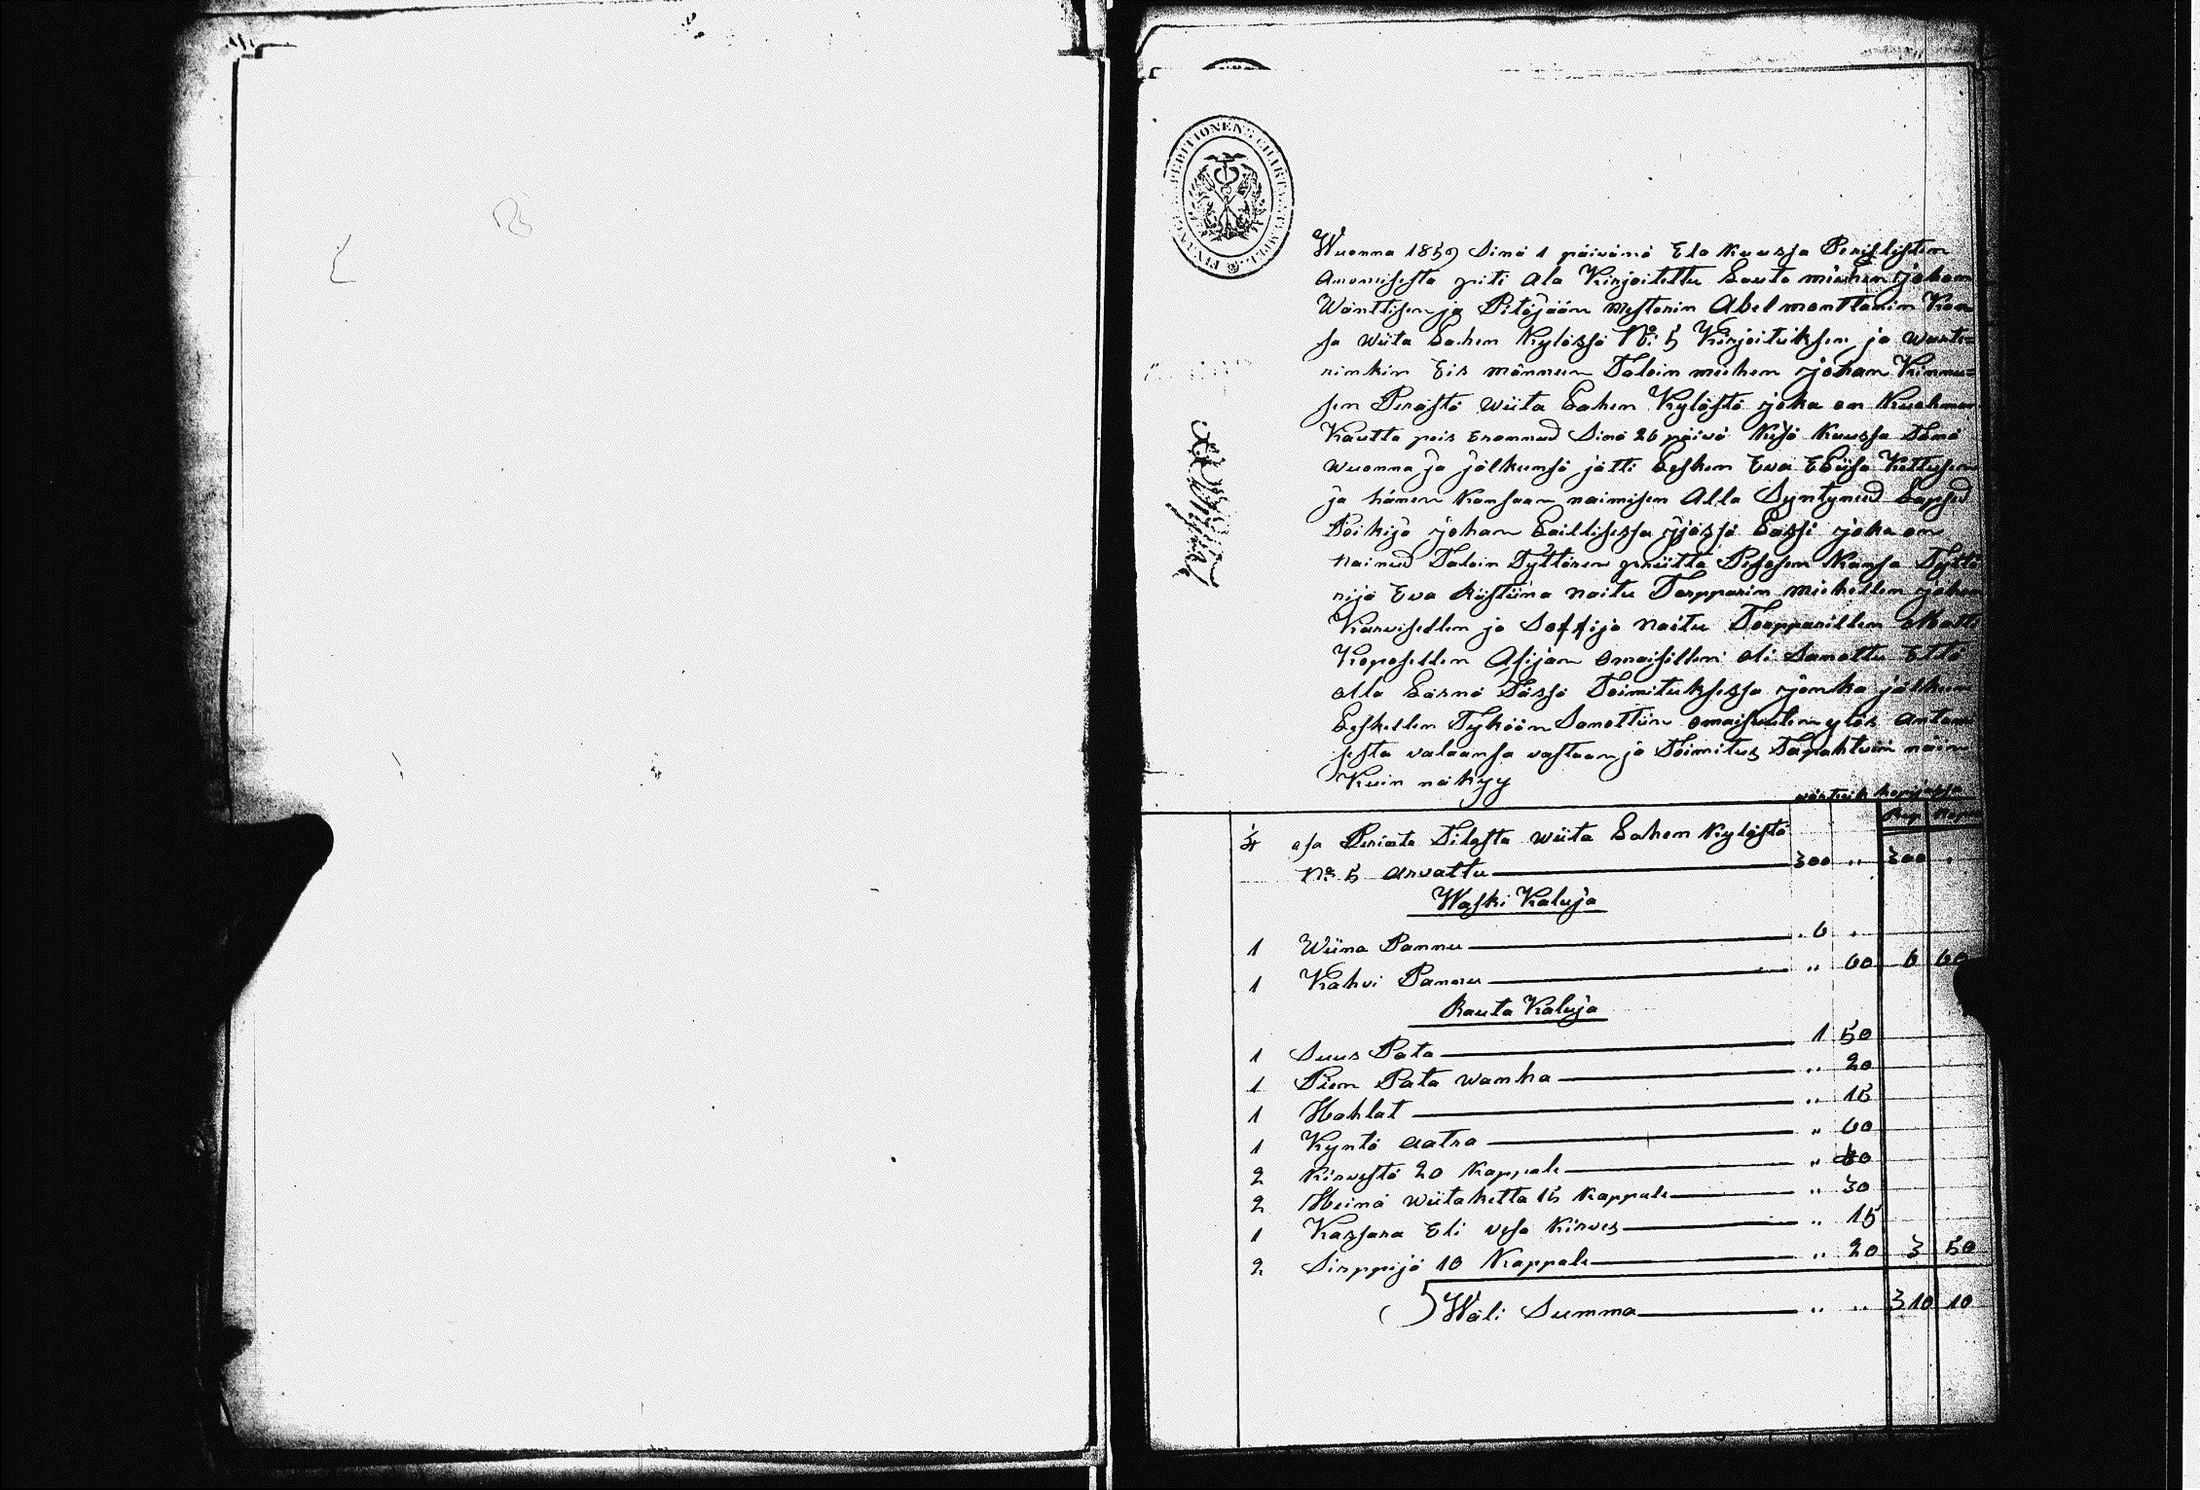 FINANCE EXPEDITIONENS CHARTÆ STÄMPEL
Wuonna 1859 Sinä 1 päivänä Elo Kuussa Perillisten
Anomisesta piti Ala Kirjoitettu Lauta miehen johan
Wänttisen ja Pitäjään Mestarin Abel monttanin Kan
sa wiita Sahen Kylässä No: 5 Kirjoituksen ja
rinkin Eis männeen Taloin miehen johan Kinnu=
sen Perästä wiita Sahen Kylästä joka on Kuoleman
Kautta pois Erannud Sinä 26 päivä Kesä Kuussa Tänä
wuonna ja jälkeensä jätti Lesken Eva Eliisa Kettusen
ja hänen Kansaan naimisen Alla Syntyned Lapsed
Poikija johan Laillisessa jjässä Lassi joka on
Nainud Taloin Tyttären Pesosen Kansa Tyttä
rijä Eva Kistiina Naitu Torpparin Miehellen johan
Karvisellen ja Soffija Naitu Torpparillen Matti
Koposellen Asijan Omaisillen oli Sanottu Että
olla Läsnä Tässä Toimituksessa jonka jälkeen
Leskellen Tyköön Sanottiin omaisuuten ylös Antami
sesta valaansa vastaan ja Toimitus Tapahtuin näin
Kuin näkyy
Rup Kopek
¼ osa Perinto Tilasta wiita Sahen Kylästä
No 5 arvattu 300 " 300 "
Waski Kaluja
1 Wiina Pannu " 6 "
1 Kahvi Pannu " 60 6 60
Rauta Kaluja
1 Suus Pata 1 50
1 Pien Pata wanha " 20
1 Hahlat " 15
1 Kyntö aatra " 60
2 Kirvestä 20 Kappale " 40
2 Heinä wiitaketta 15 Kappale " 30
1 Kassara Eli vesa Kirves " 15
2 Sirppijä 10 Kappale " 20 3 50
Wäli Summa " " 310 10